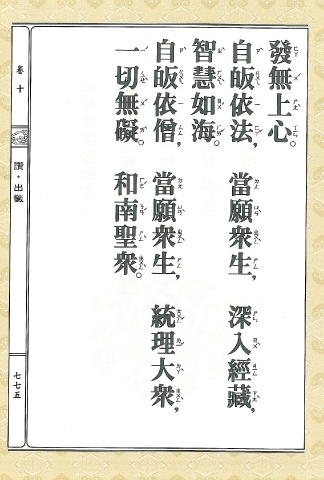 發無上心。
自皈依法，當願眾生，深入經藏，
智慧如海。
自皈依僧，當願眾生，統理大眾，
一切無礙。和南聖眾。
卷十
讚・出懺
七七五